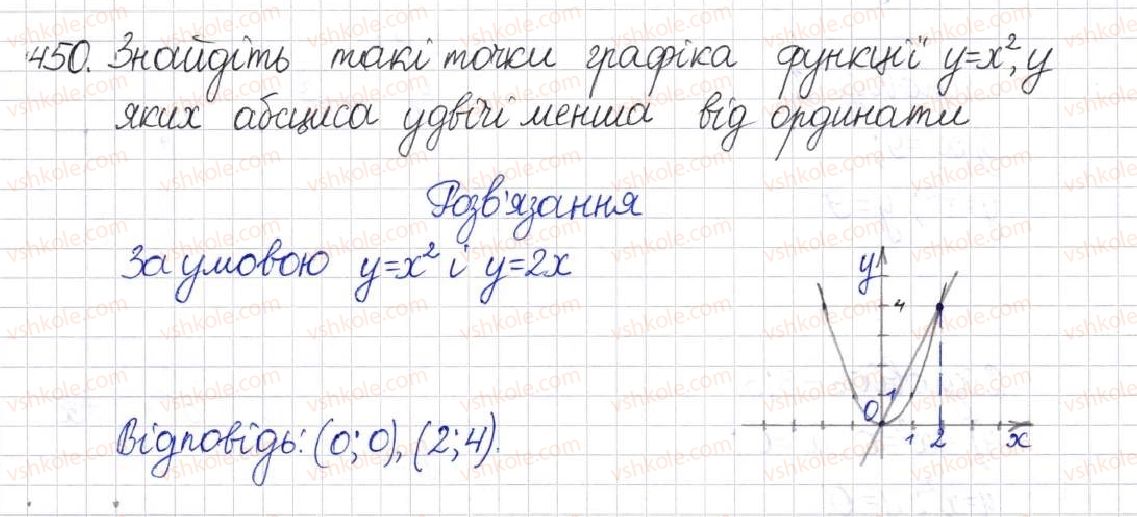 450. Знайдіть такі точки графіка функції y=x², у
яких абсциса удвічі менша від ординати
Розв'язання
За умовою y=x² і y=2x
y
4
1
0
1 2 x
Відповідь: (0; 0), (2; 4).
vshkole.com